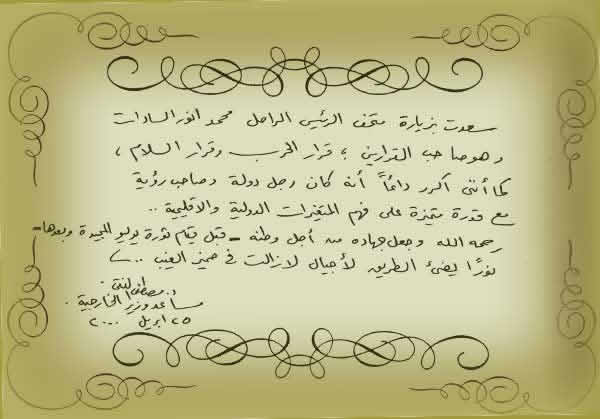 سعدت بزيارة متحف الرئيس الراحل محمد أنور السادات
وهو صاحب القرارين ؛ قرار الحرب وقرار السلام ،
كما أننى أكرر دائماً أنه كان رجل دولة وصاحب رؤية
مع قدرة متميزة على فهم المتغيرات الدولية والاقليمية ..
رحمه الله وجعل جهاده من أجل وطنه - قبل قيام ثورة يوليو المجيدة وبعدها -
نورًا يضئ الطريق لأجيال لازالت فى ضمير الغيب ..
د. مصطفى الفقى .
مساعد وزير الخارجية .
٢٥ ابريل ٢٠٠٠